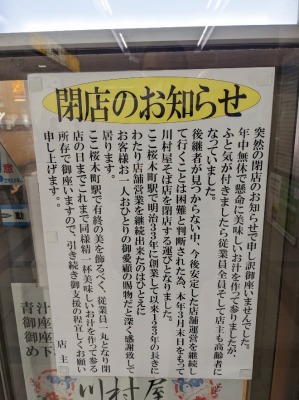 閉店のお知らせ
突然の閉店のお知らせで申し訳御座いませんでした。
年中無休で懸命に美味しいお汁を作って参りましたが、
ふと気が付きましたら従業員含めそして店主も高齢者に
なっていました。
後継者が見つからない中、今後安定した店舗運営を継続し
て行くことは困難と判断された為、本年3月末日をもって
川村屋そば店を閉店する運びとなりました。
ここ桜木町駅で明治33年に創業して以来123年の長きに
わたり店舗営業を継続出来たのひとえに
お客様お一人お一人おひとりの御愛顧の賜物だと深く感謝致して
居ります。
ここ桜木町駅で有終の美を飾るべく、従業員一丸となり閉
店の日までこれまで同様精一杯美味しいお汁を作って参る
所存で御座いますので、引き続き御支援の程宜しくお願い
申し上げます。
店主
川村屋